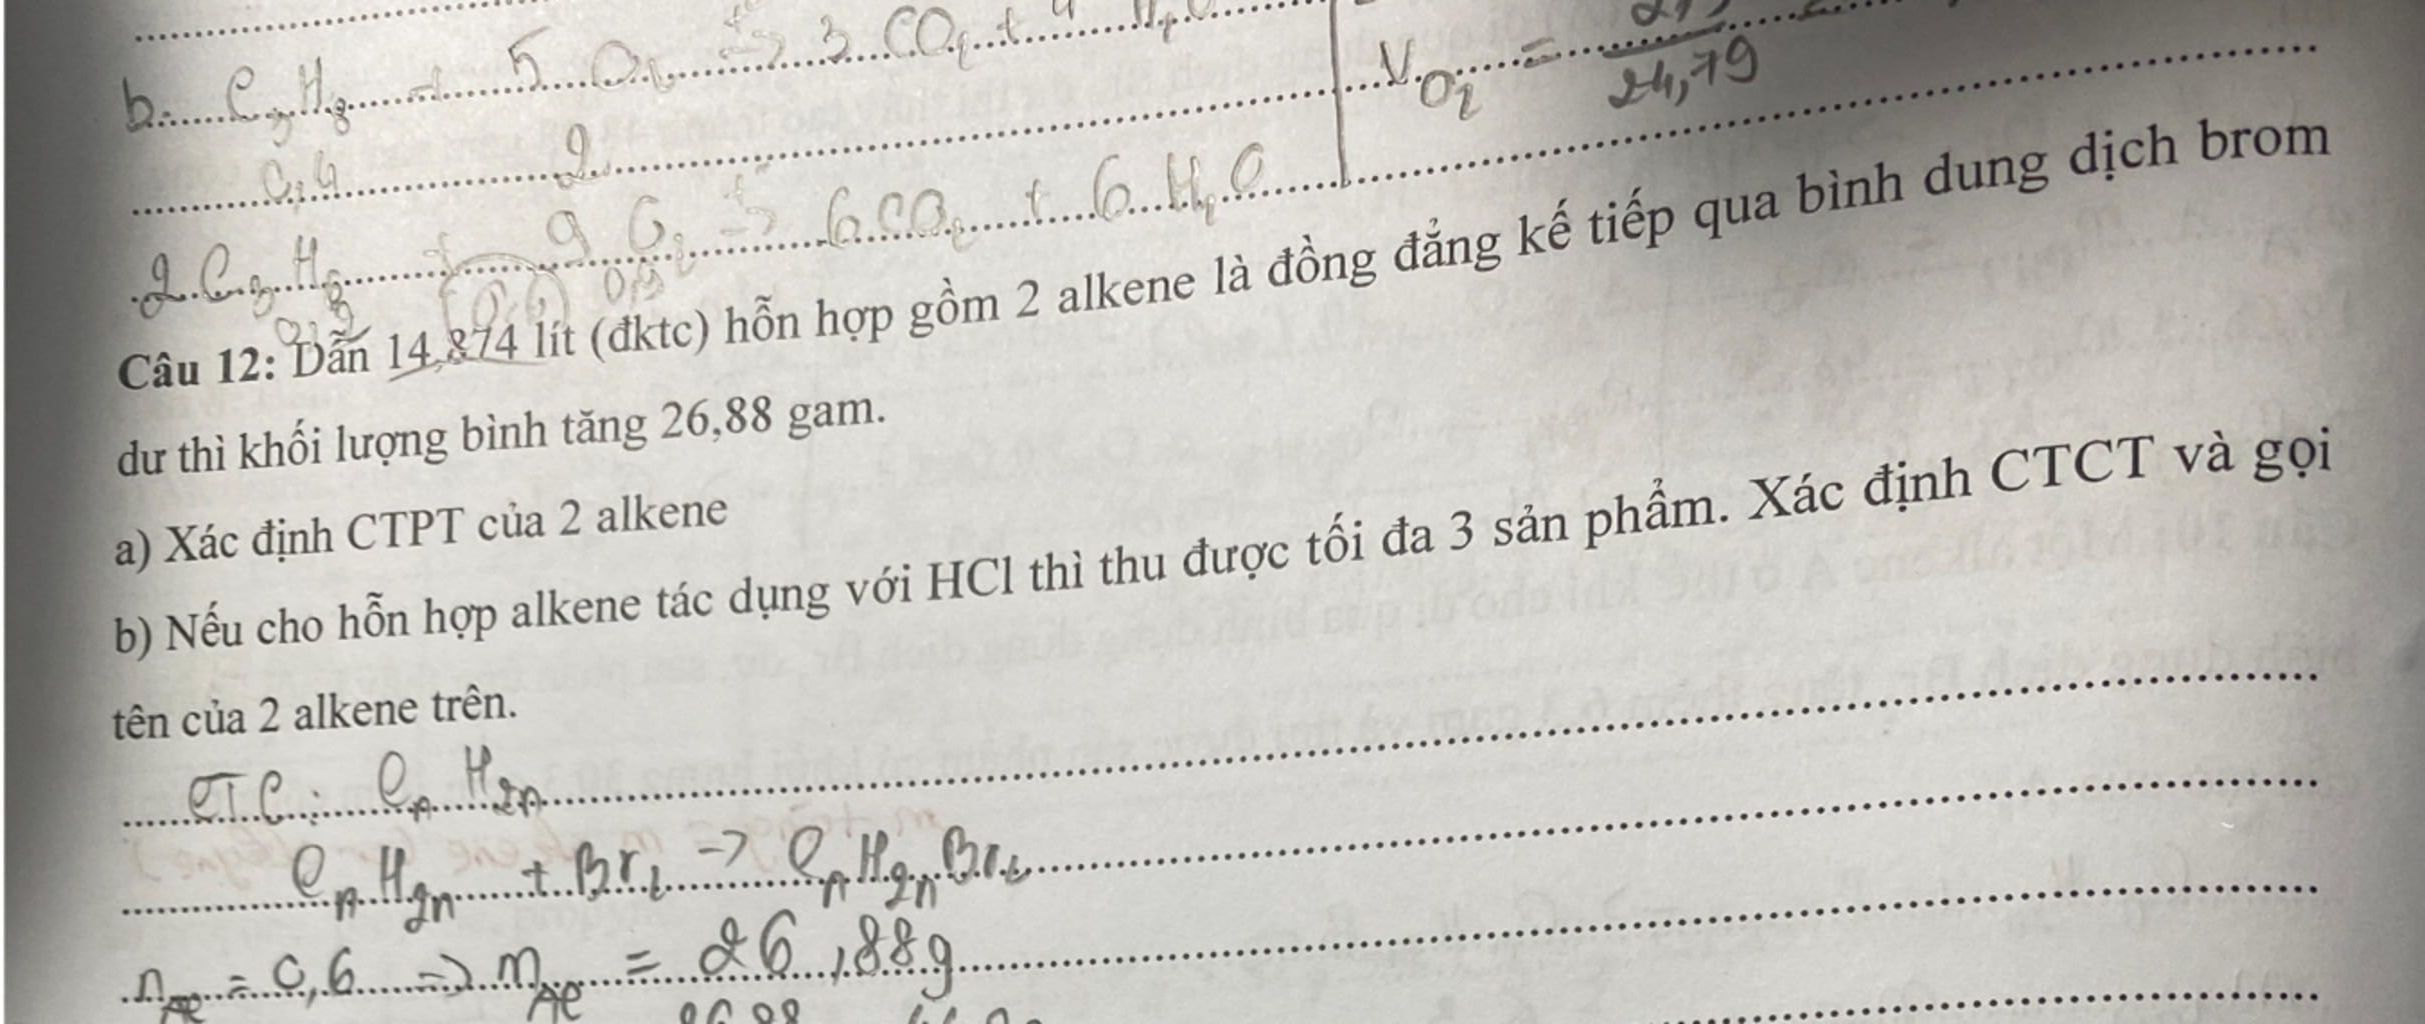 b. C₃H₈ + 5 O₂ → 3 CO₂ + 4 H₂O
V O₂ = 24,79
0,4 2
2 C₃H₆ + 9 O₂ → 6 CO₂ + 6 H₂O
0,2 0,9
Câu 12: Dẫn 14,874 lít (đktc) hỗn hợp gồm 2 alkene là đồng đẳng kế tiếp qua bình dung dịch brom
dư thì khối lượng bình tăng 26,88 gam.
a) Xác định CTPT của 2 alkene
b) Nếu cho hỗn hợp alkene tác dụng với HCl thì thu được tối đa 3 sản phẩm. Xác định CTCT và gọi
tên của 2 alkene trên.
CTC: CₙH₂ₙ
CₙH₂ₙ + Br₂ → CₙH₂ₙBr₂
n = 0,6 → m = 26,88g